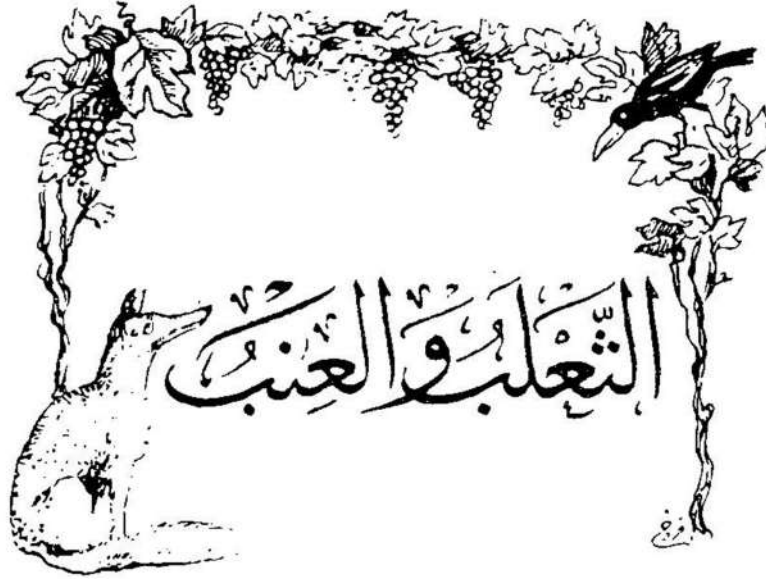 الثَّعْلَبُ وَالْعِنَبُ